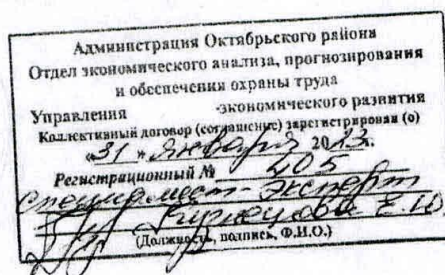 Администрация Октябрьского района
Отдел экономического анализа, прогнозирования
и обеспечения охраны труда
Управления -экономического развития
Коллективный договор (соглашение) зарегистрирован (о)
«31» января 2023г.
Регистрационный № 405
специалист-эксперт
Кузнецова Е.Ю.
(Должность, подпись, Ф.И.О.)